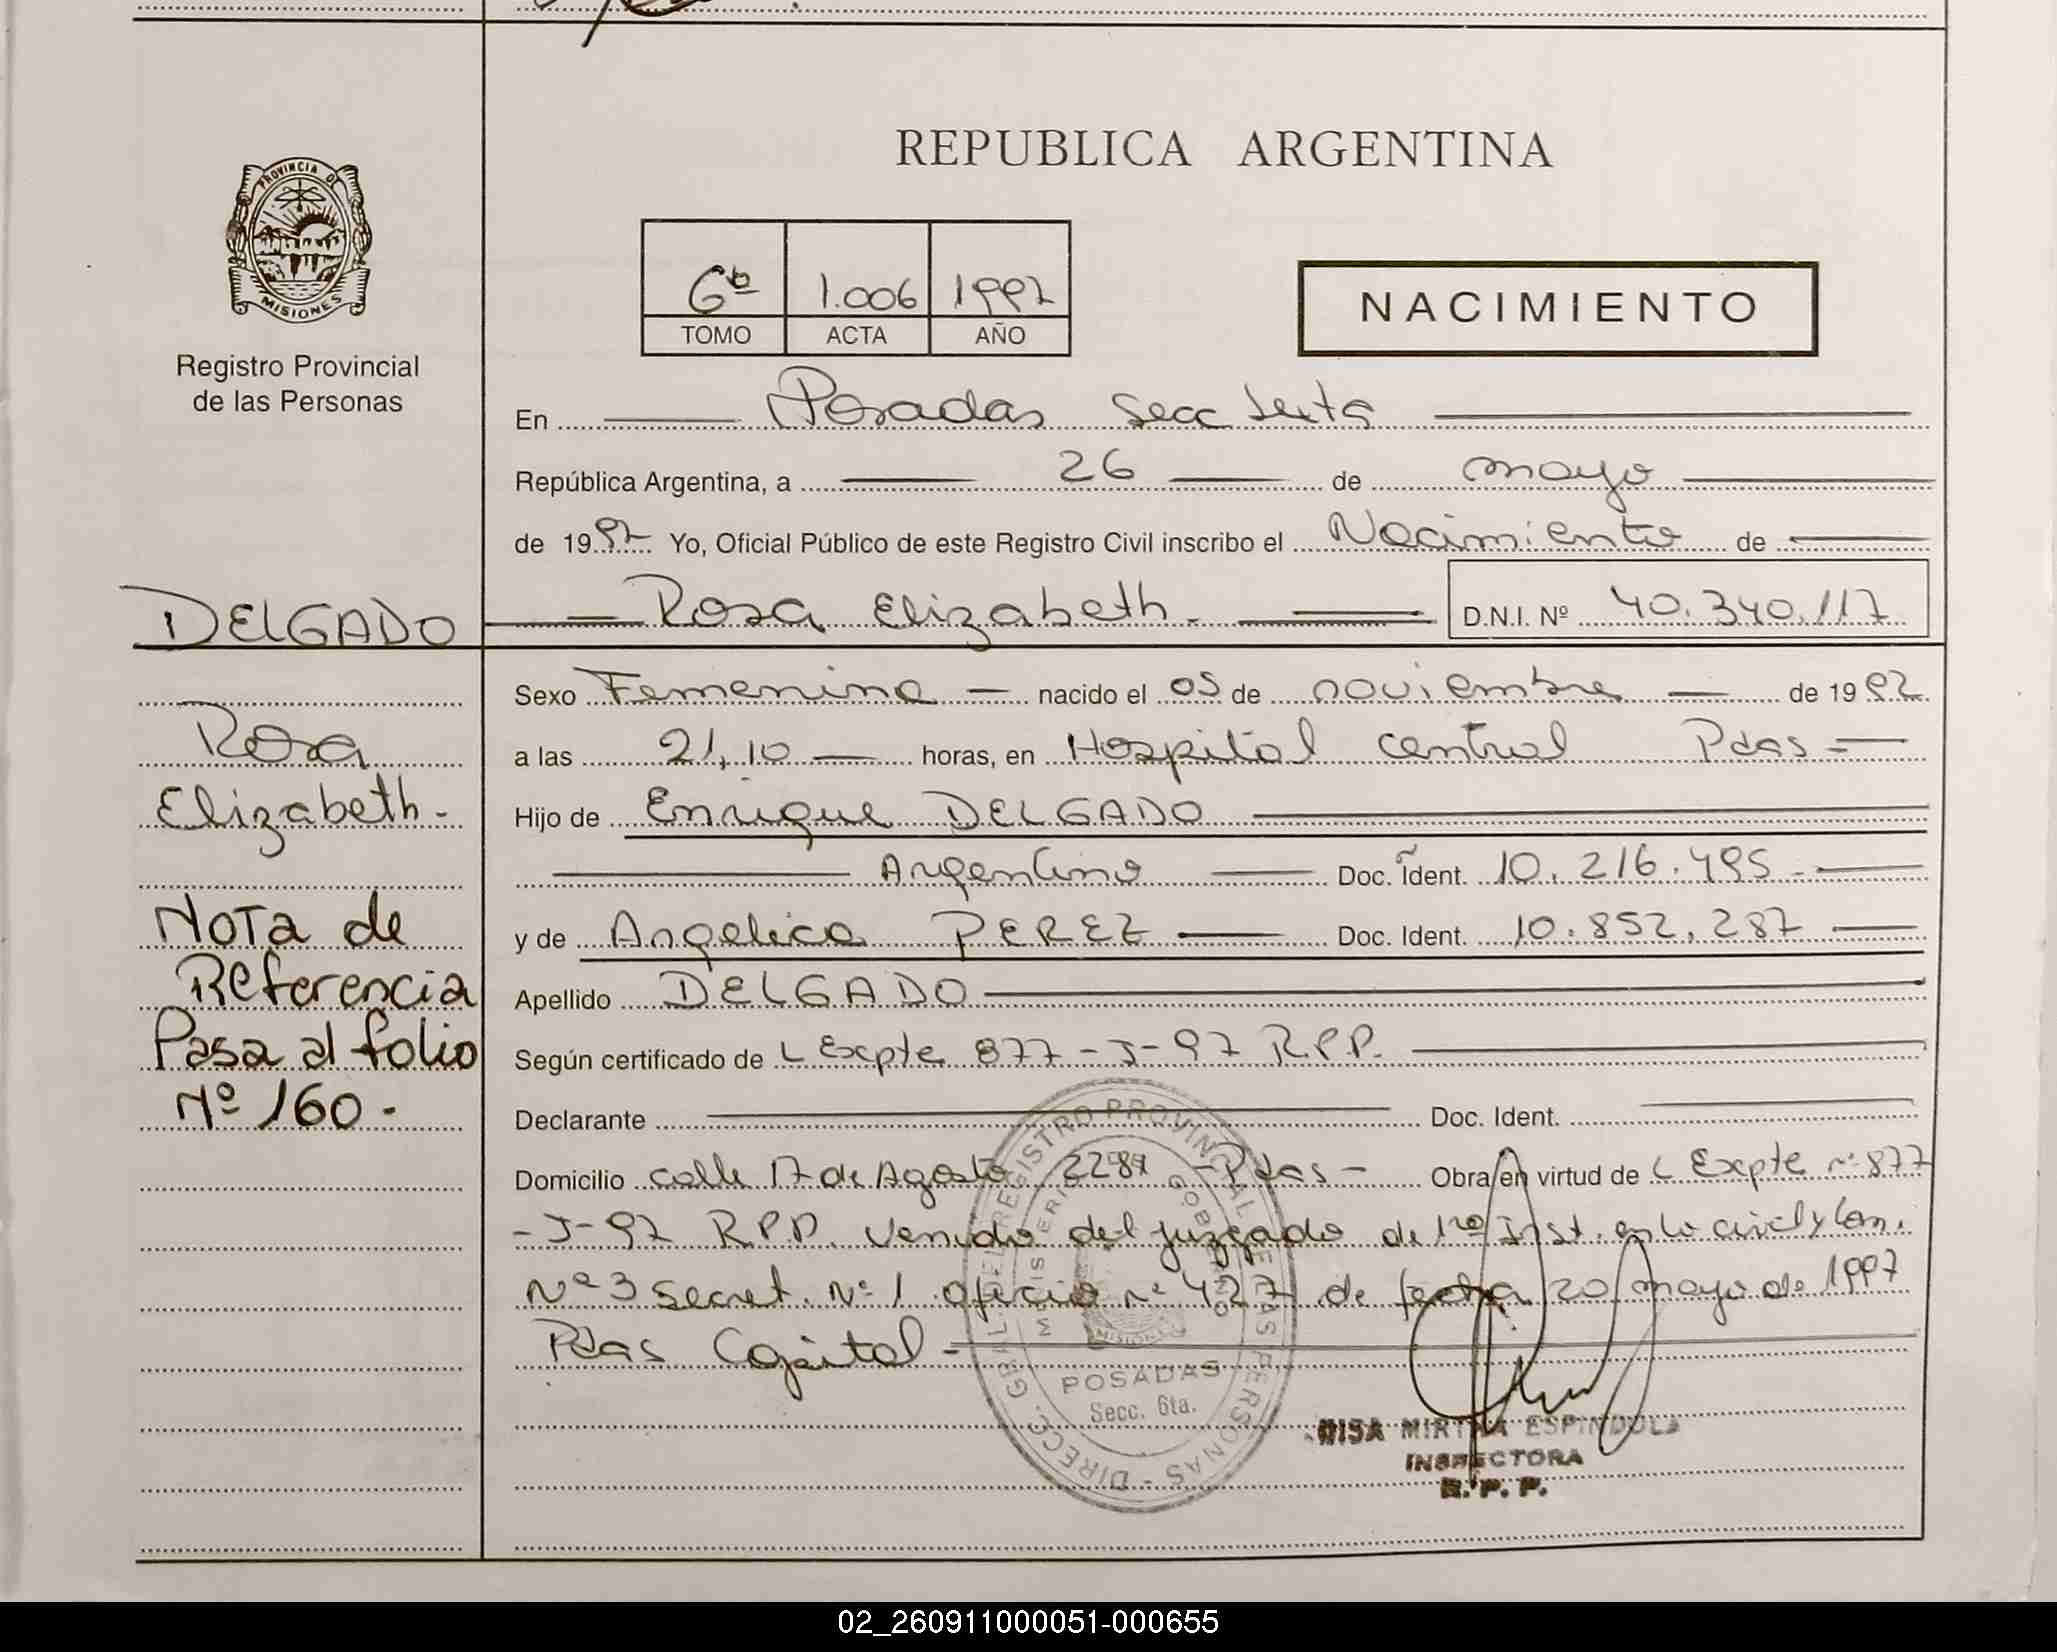 REPUBLICA ARGENTINA
PROVINCIA DE
MISIONES
Registro Provincial
de las Personas
6to 1.006 1997
TOMO ACTA AÑO
NACIMIENTO
En Posadas Secc Sexta
República Argentina, a 26 de mayo
de 1997 Yo, Oficial Público de este Registro Civil inscribo el Nacimiento de
DELGADO Rosa Elizabeth. D.N.I. Nº 40.340.117
Rosa
Elizabeth-
Nota de
Referencia
Pasa al folio
Nº 160-
Sexo Femenino nacido el 05 de noviembre de 1992
a las 21,10 horas, en Hospital central Pdas-
Hijo de Enrique DELGADO
Argentino Doc. Ident. 10.216.495-
y de Angelica PEREZ Doc. Ident. 10.852.287
Apellido DELGADO
Según certificado de L Expte 877-J-97 R.P.P.
Declarante Doc. Ident.
Domicilio calle 17 de Agosto 2284 -Pdas- Obra en virtud de L Expte nº 877
-J-97 R.P.P. Venido del juzgado de 1ra Inst. en lo civil y Com.
Nº 3 Secret. Nº 1 oficio nº 427 de fecha 20 mayo de 1997
Pdas Capital-
DIRECC. GRAL. DEL REGISTRO PROVINCIAL DE LAS PERSONAS
MINISTERIO GOBIERNO
MISIONES
POSADAS
Secc. 6ta.
MIRTHA ESPINDOLA
INSPECTORA
R. P. P.
02_260911000051-000655